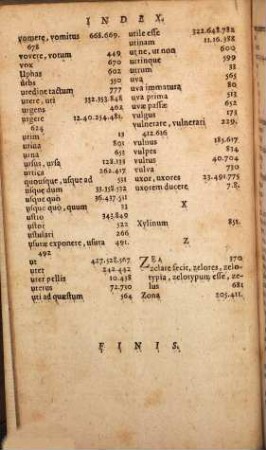 INDEX.
vomere, vomitus 668.669.
678
vovere, votum 449
vox 670
Uphas 602
urbs 350
uredine tactum 777
urere, uri 332.333.848
urgens 462
urgere 12.40.254.481.
624
urina 13
urina 801
urna 521
ursus, ursa 128.133
urtica 262.417
quousque, usque ad 511
usque dum 33.358.552
usque quò 36.437.511
usque quò, quum 11
ustio 343.849
ustor 522
ustulari 266
usuræ exponere, usura 491.
492
ut 427.528.567
uter 242.442
uter pellis 10.438
uterus 72.750
uti ad quæstum 564
utile esse 322.648.782
utinam 11.16.388
ut ne, ut non 600
utrinque 599
utrum 31
uva 565
uva immatura 80
uva prima 513
uvæ passæ 652
vulgus 721
vulnerare, vulnerati 229.
412.636
vultus 185.617
vulpes 814
vultus 40.704
vulva 730
uxor, uxores 23.491.775
uxorem ducere 7.8.
X
Xylinum 851.
Z
ZEA 370
zelare fecit, zelores, zelo-
typia, zelotypum esse, ze-
lus 681
Zona 205.411.
FINIS.